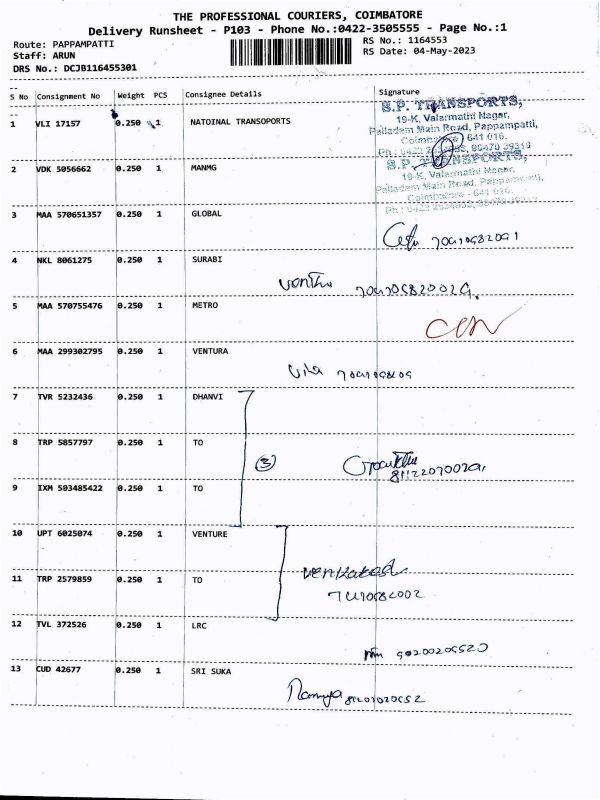 THE PROFESSIONAL COURIERS, COIMBATORE
Delivery Runsheet - P103 - Phone No.:0422-3505555 - Page No.:1
Route: PAPPAMPATTI
RS No.: 1164553
Staff: ARUN
RS Date: 04-May-2023
DRS No.: DCJB116455301
S No Consignment No Weight PCS Consignee Details Signature
1 VLI 17157 0.250 1 NATOINAL TRANSOPORTS
S.P. TRANSPORTS,
19-K, Valarmathi Nagar,
Palladam Main Road, Pappampatti,
Coimbatore - 641 016.
2 VDK 5056662 0.250 1 MANMG
S.P. TRANSPORTS,
19-K, Valarmathi Nagar,
Palladam Main Road, Pappampatti,
Coimbatore - 641 016.
3 MAA 570651357 0.250 1 GLOBAL
4 NKL 8061275 0.250 1 SURABI
5 MAA 570755476 0.250 1 METRO
6 MAA 299302795 0.250 1 VENTURA
7 TVR 5232436 0.250 1 DHANVI
8 TRP 5857797 0.250 1 TO
3
9 IXM 503485422 0.250 1 TO
10 UPT 6025074 0.250 1 VENTURE
Venkatesh
11 TRP 2579859 0.250 1 TO
12 TVL 372526 0.250 1 LRC
13 CUD 42677 0.250 1 SRI SUKA
Ramya